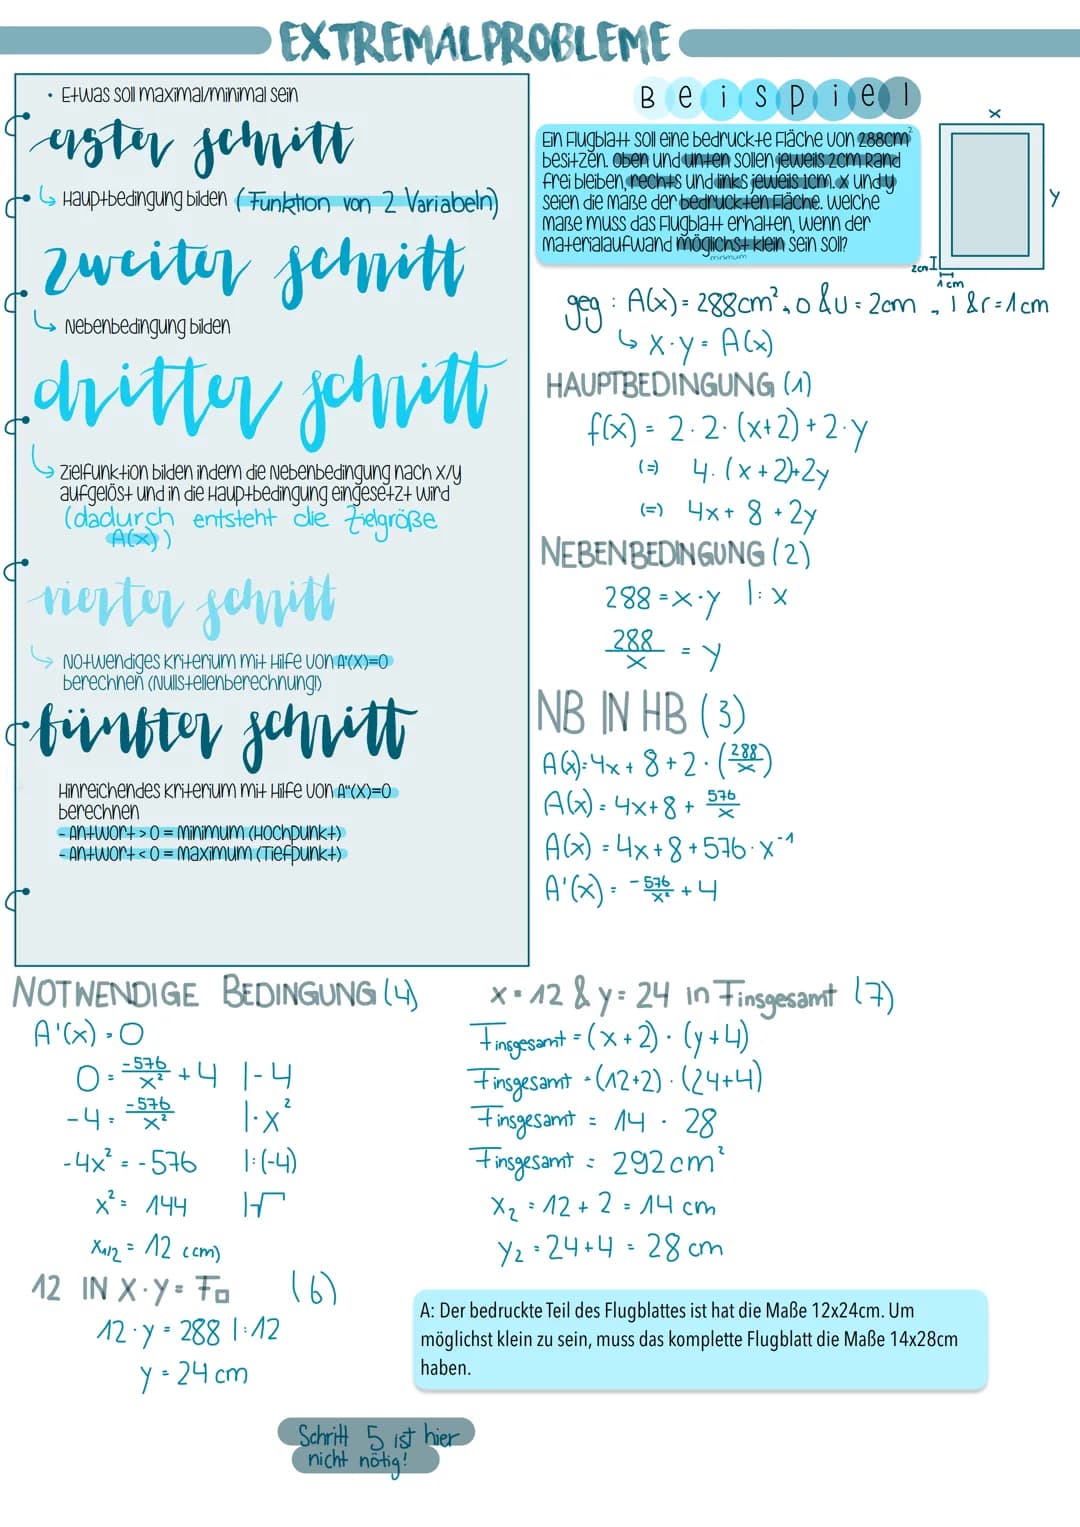 EXTREMALPROBLEME
• Etwas soll maximal/minimal sein
erster schritt
↳ Hauptbedingung bilden (Funktion von 2 Variabeln)
zweiter schritt
↳ Nebenbedingung bilden
dritter schritt
↳ Zielfunktion bilden indem die Nebenbedingung nach x/y
aufgelöst und in die Hauptbedingung eingesetzt wird
(dadurch entsteht die Zielgröße
A(x))
vierter schritt
↳ Notwendiges Kriterium mit Hilfe von A'(X)=0
berechnen (Nullstellenberechnung!)
fünfter schritt
Hinreichendes Kriterium mit Hilfe von A"(X)=0
berechnen
- Antwort > 0 = Minimum (Hochpunkt)
- Antwort < 0 = Maximum (Tiefpunkt)
Beispiel
Ein Flugblatt soll eine bedruckte Fläche von 288cm²
besitzen. Oben und unten sollen jeweils 2cm Rand
frei bleiben, rechts und links jeweils 1cm. x und y
seien die Maße der bedruckten Fläche. Welche
Maße muss das Flugblatt erhalten, wenn der
Materialaufwand möglichst klein sein soll?
minimum
x
y
2cm
1cm
geg : A(x) = 288cm², o & u = 2cm , l & r = 1cm
↳ x·y = A(x)
HAUPTBEDINGUNG (1)
f(x) = 2·2·(x+2)+2·y
(=) 4·(x+2)+2y
(=) 4x+8+2y
NEBENBEDINGUNG (2)
288 = x·y |: x
288/x = y
NB IN HB (3)
A(x)=4x+8+2·(288/x)
A(x)=4x+8+ 576/x
A(x)=4x+8+576·x⁻¹
A'(x)= -576/x² +4
NOTWENDIGE BEDINGUNG (4)
A'(x)=0
0 = -576/x² +4 |-4
-4 = -576/x² |·x²
-4x² = -576 |:(-4)
x² = 144 |√
x1/2 = 12 (cm)
12 IN X·Y = F□ (6)
12·y = 288 |:12
y = 24 cm
x = 12 & y = 24 in Finsgesamt (7)
Finsgesamt = (x+2)·(y+4)
Finsgesamt = (12+2)·(24+4)
Finsgesamt = 14 · 28
Finsgesamt = 292cm²
x₂ = 12+2 = 14 cm
y₂ = 24+4 = 28 cm
A: Der bedruckte Teil des Flugblattes ist hat die Maße 12x24cm. Um
möglichst klein zu sein, muss das komplette Flugblatt die Maße 14x28cm
haben.
Schritt 5 ist hier
nicht nötig!